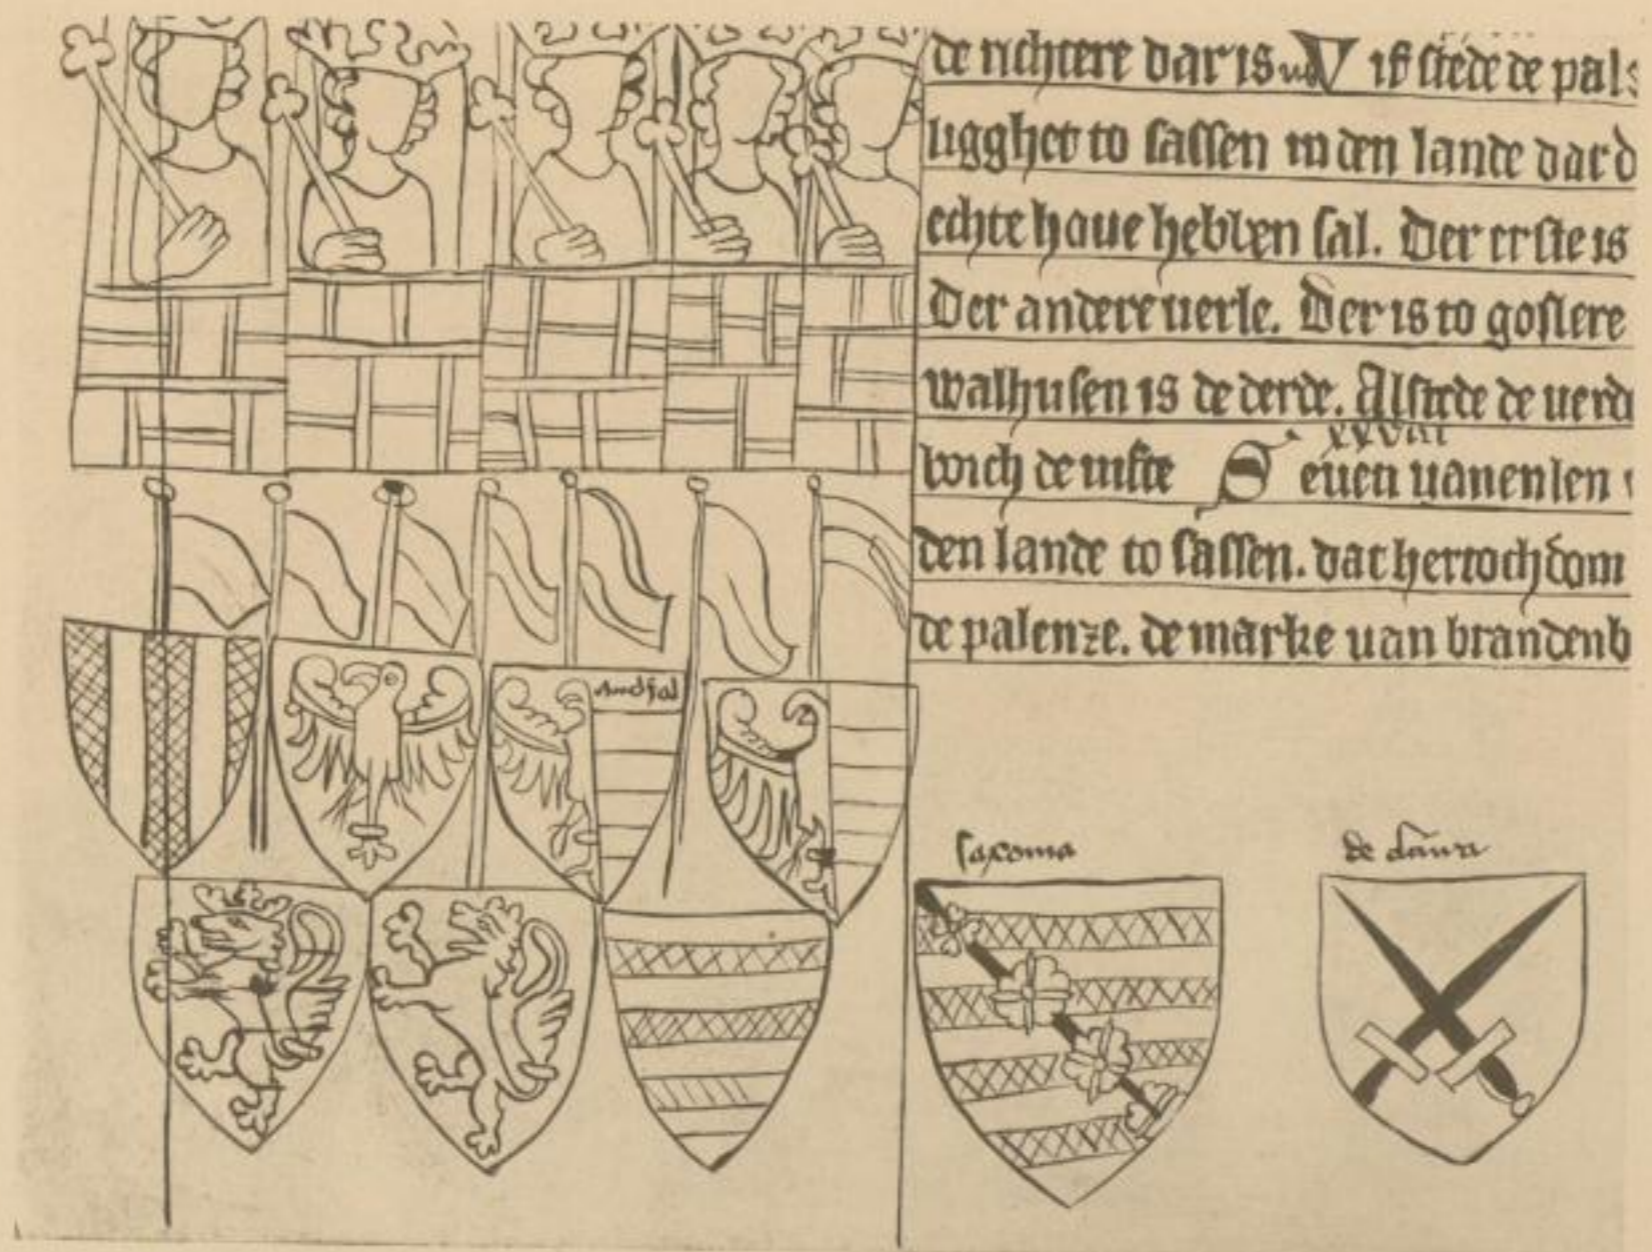 de richtere dar is V if stede de pals
ligghet to sassen in den lande dar d
echte houe hebben sal. Der erste is
Der andere uerle. Der is to goslere
walhusen is de derde. Alstede de uerd
xxviii
borch de uifte Seuen uanenlen
den lande to sassen. dat hertochdom
de palenze. de marke uan brandenb
saxonia